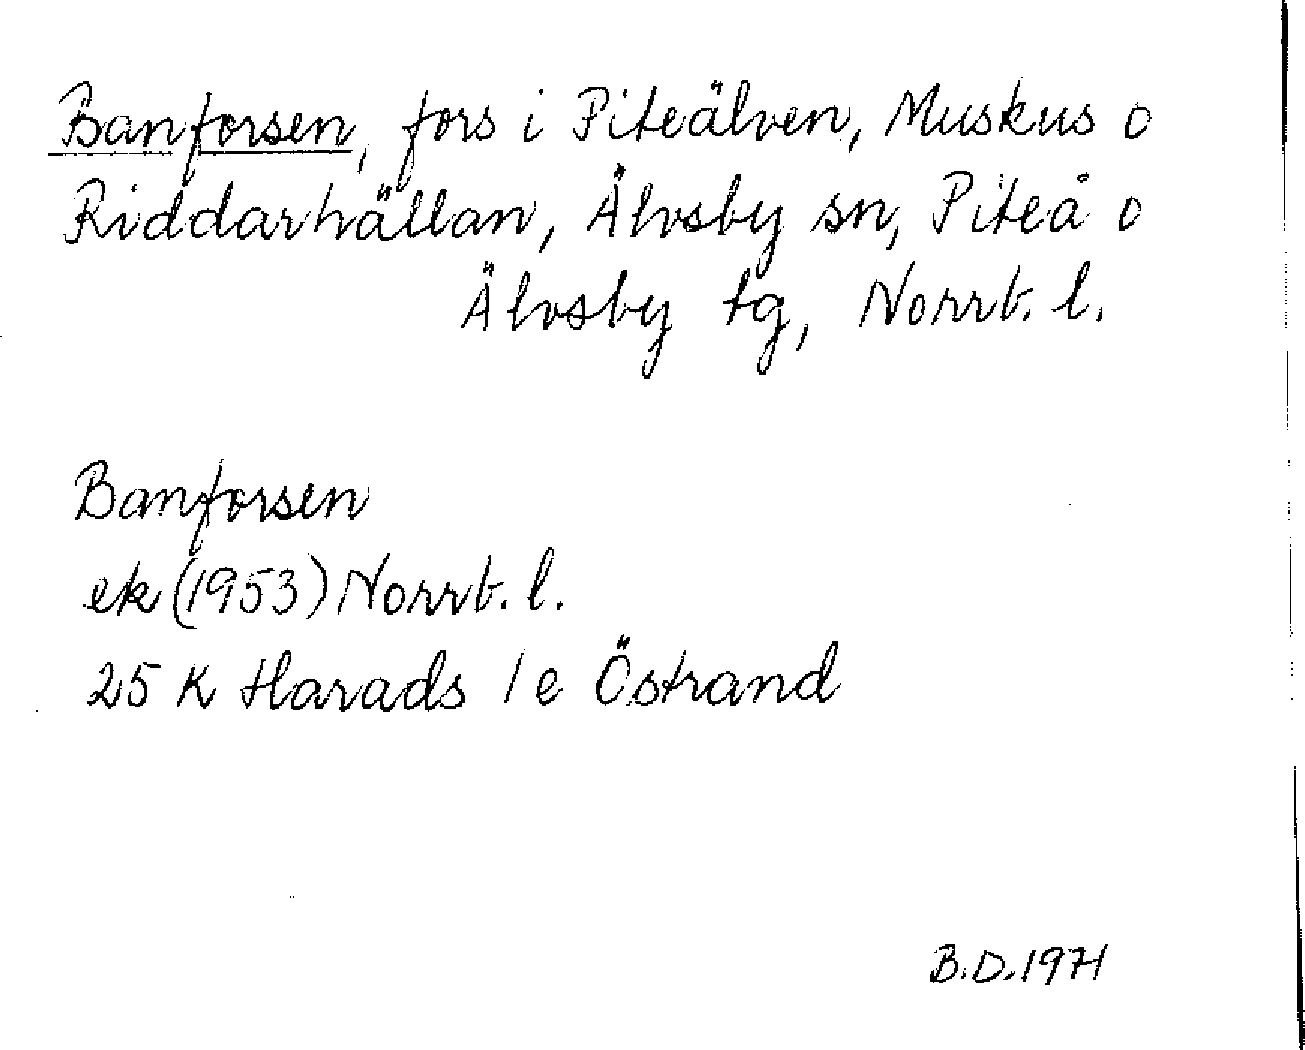 Banforsen, fors i Piteälven, Muskus o
Riddarhällan, Älvsby sn, Piteå o
Älvsby tg, Norrb. l.
Banforsen
ek (1953) Norrb. l.
25 K Harads 1 e Östrand
B.D. 1971